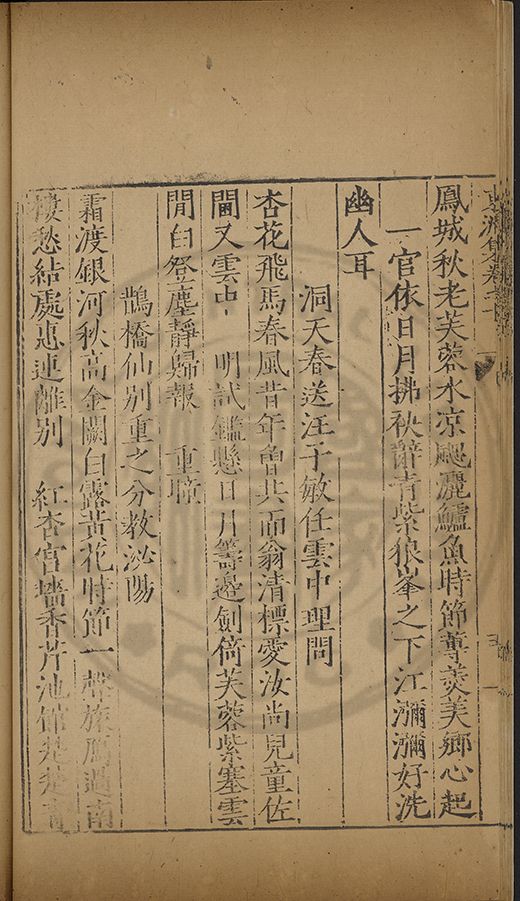 鳳城秋老芙蓉水凉颸灑鱸魚時節蓴羮美鄉心起
一官依日月拂袂辭青紫狼峯之下江瀰瀰好洗
幽人耳
洞天春送汪子敏任雲中理問
杏花飛馬春風昔年曾共而翁清標愛汝尚兒童佐
閫又雲中　明試鑑懸日月籌邊劍倚芙蓉紫塞雲
閒白登塵靜歸報　重瞳
鵲橋仙别重之分教泌陽
霜渡銀河秋高金闕白露黃花時節一聲旅鴈過南
樓愁結處惠連離别　紅杏宫墻香芹池舘楚楚青